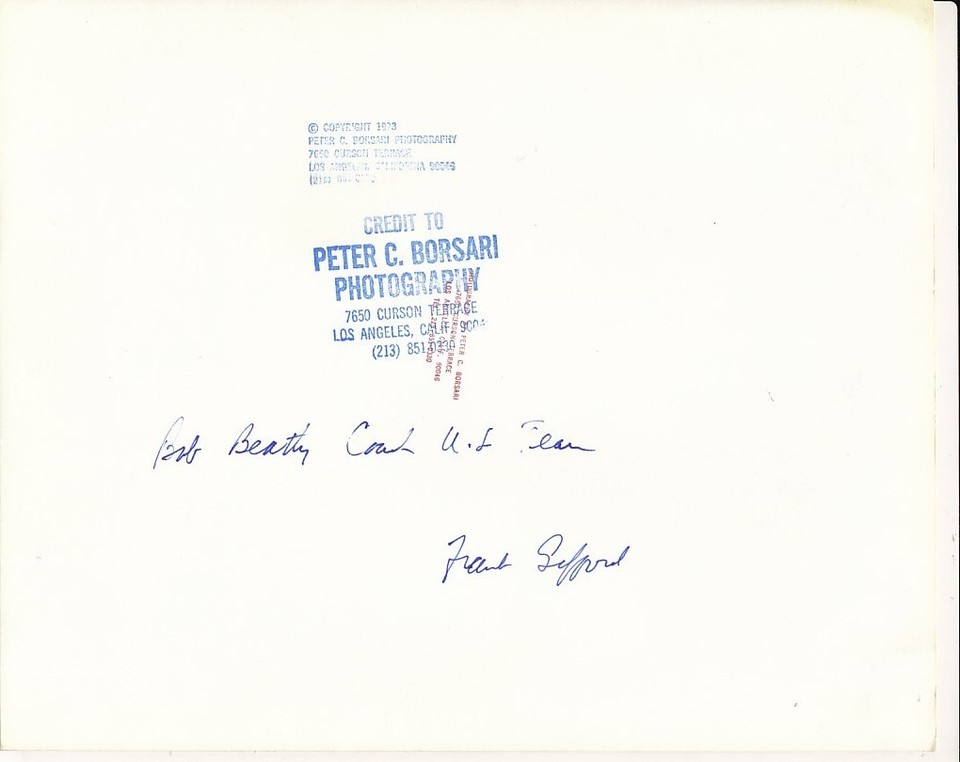 © COPYRIGHT 1973
PETER C. BORSARI PHOTOGRAPHY
7650 CURSON TERRACE
LOS ANGELES, CALIFORNIA 90046
(213)
CREDIT TO
PETER C. BORSARI
PHOTOGRAPHY
7650 CURSON TERRACE
LOS ANGELES, CALIF.
(213) 851-0330
PETER C. BORSARI
7650 CURSON TERRACE
LOS CALIF. 90046
Bob Beatty Coach U.S Team
Frank Gifford